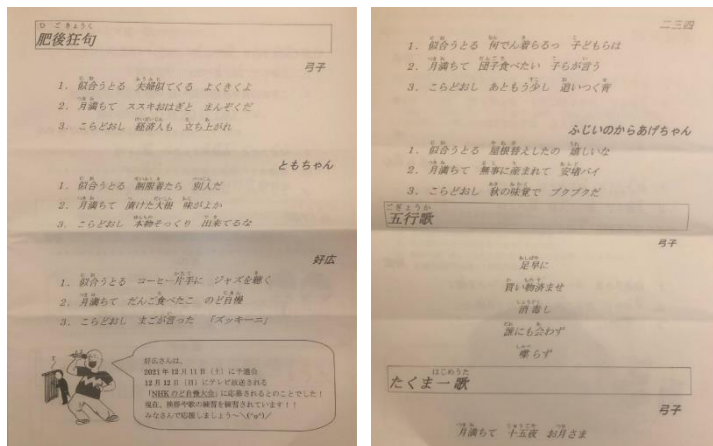 ひごきょうく
肥後狂句
弓子
1. 似合うとる 夫婦似てくる よくきくよ
2. 月満ちて ススキおはぎと まんぞくだ
3. こらどおし 経済人も 立ち上がれ
ともちゃん
1. 似合うとる 制服着たら 別人だ
2. 月満ちて 漬けた大根 味がよか
3. こらどおし 本物そっくり 出来てるな
好広
1. 似合うとる コーヒー片手に ジャズを聴く
2. 月満ちて だんご食べたこ のど自慢
3. こらどおし まごが言った 「ズッキーニ」
好広さんは、
2021年12月11日(土)に予選会
12月12日(日)にテレビ放送される
「NHKのど自慢大会」に応募されるとのことでした!
現在、挨拶や歌の練習を練習されています!!
みなさんで応援しましょう~\(^o^)/
二三四
1. 似合うとる 何でん着らるっ 子どもらは
2. 月満ちて 団子食べたい 子らが言う
3. こらどおし あともう少し 追いつく背
ふじいのからあげちゃん
1. 似合うとる 屋根替えしたの 嬉しいな
2. 月満ちて 無事に産まれて 安堵バイ
3. こらどおし 秋の味覚で ブクブクだ
ごぎょうか
五行歌
弓子
足早に
買い物済ませ
消毒し
誰にも会わず
喋らず
はじめうた
たくま一歌
弓子
月満ちて 十五夜 お月さま